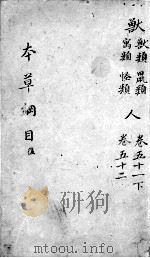 獸 獸類 鼠類 卷五十一下
寓類 怪類 人 卷五十二
本草綱目
www.mtoou.info